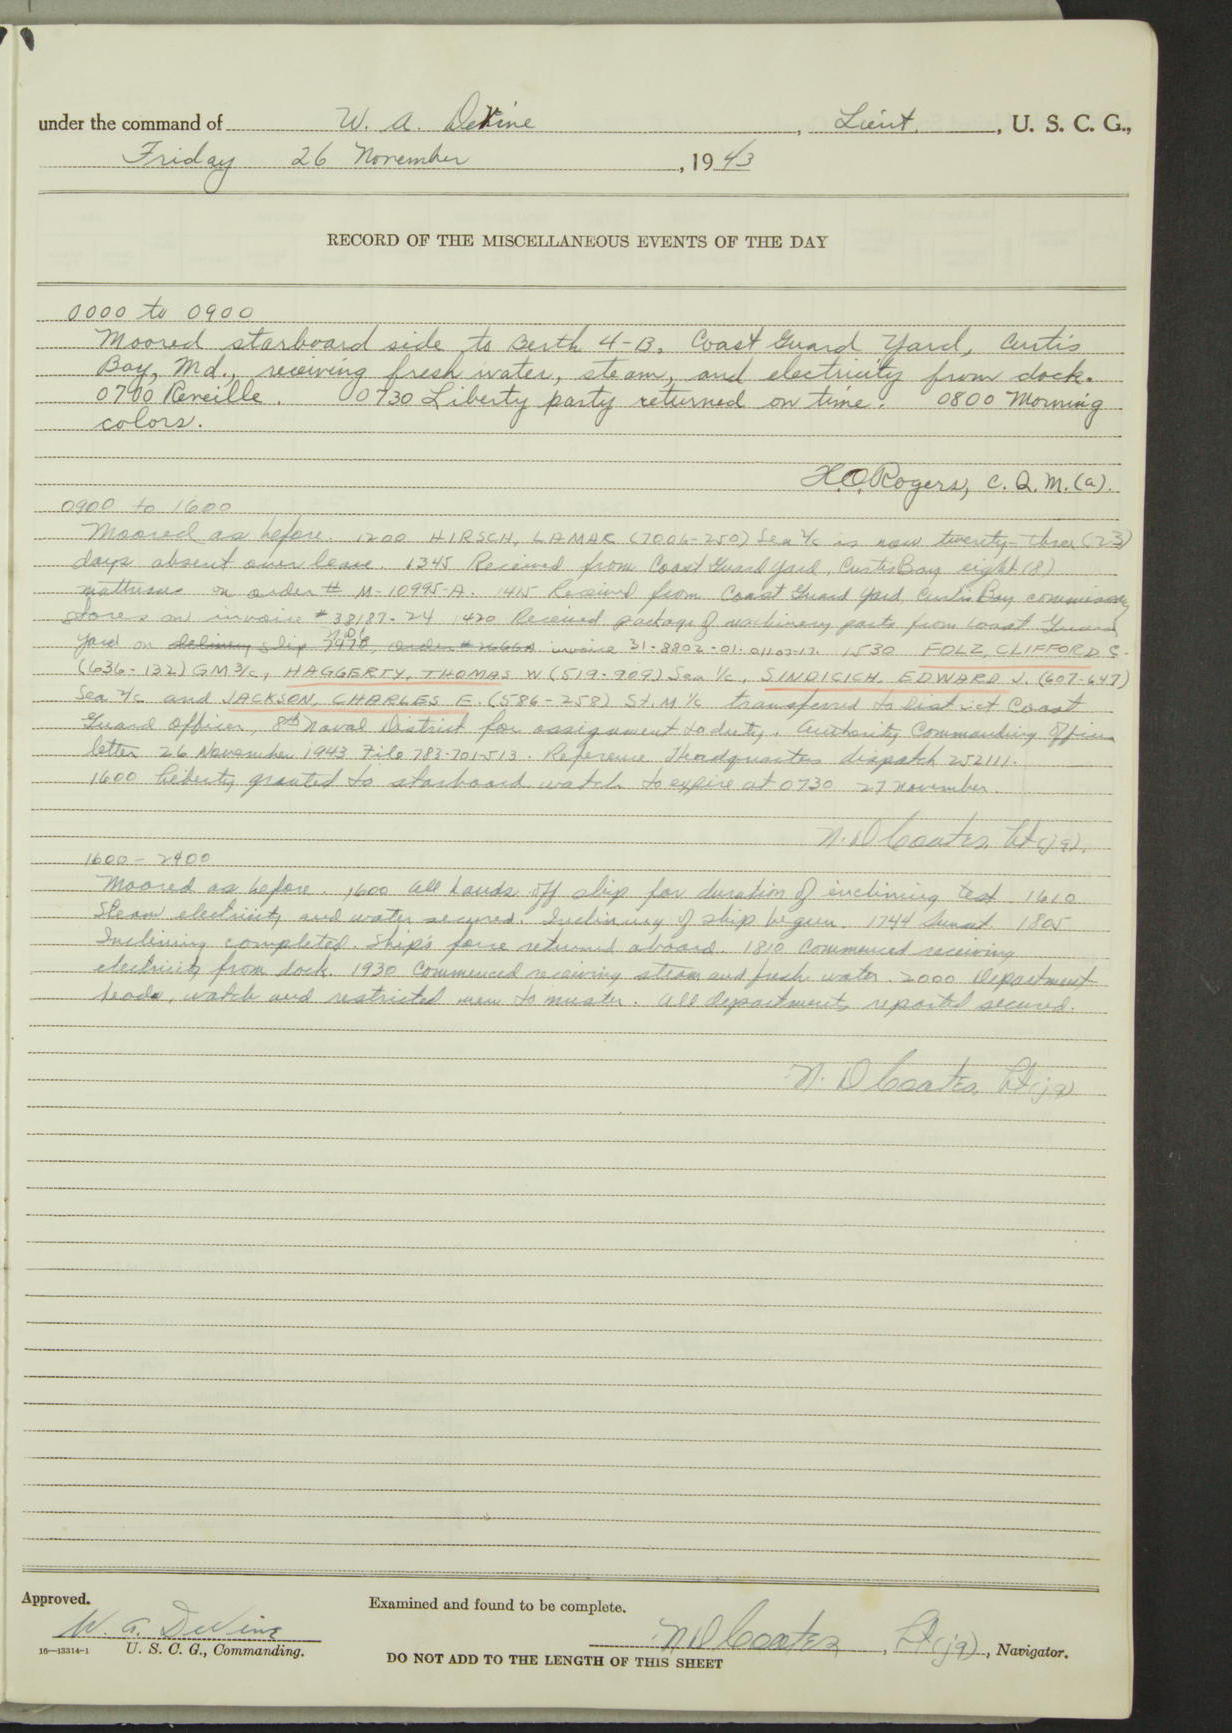 under the command of W. A. DeVine, Lieut., U. S. C. G.,
Friday 26 November, 1943
RECORD OF THE MISCELLANEOUS EVENTS OF THE DAY
0000 to 0900
Moored starboard side to Berth 4-B, Coast Guard Yard, Curtis
Bay, Md., receiving fresh water, steam, and electricity from dock.
0700 Reveille. 0730 Liberty party returned on time. 0800 Morning
colors.
H.O. Rogers, C.Q.M.(a).
0900 to 1600
Moored as before. 1200 HIRSCH, LAMAR (7006-250) Sea 2/c is now twenty-three (23)
days absent over leave. 1345 Received from Coast Guard Yard, Curtis Bay eight (8)
mattresses on order # M-10995-A. 1415 Received from Coast Guard Yard Curtis Bay commissary
stores on invoice # 38187-24 1420 Received package of machinery parts from Coast Guard
Yard on delivery slip order # invoice 31-8802-01-01103-17. 1530 FOLZ, CLIFFORD C.
(636-132) GM 3/c, HAGGERTY, THOMAS W (519-909) Sea 1/c, SINDICICH, EDWARD J. (607-647)
Sea 2/c and JACKSON, CHARLES E. (586-258) St. M 1/c transferred to District Coast
Guard Officer, 8th Naval District for assignment to duty. Authority Commanding Officer
letter 26 November 1943 File 783-701-513. Reference Headquarters dispatch 252111.
1600 Liberty granted to starboard watch to expire at 0730 27 November.
N. D Coates, Lt(jg).
1600-2400
Moored as before. 1600 All hands off ship for duration of inclining test 1610
Steam electricity and water secured. Inclining of ship begun. 1744 Sunset 1805
Inclining completed. Ship's force returned aboard. 1810 Commenced receiving
electricity from dock. 1930 Commenced receiving steam and fresh water. 2000 Department
heads, watch and restricted men to muster. All departments reported secured.
N. D Coates, Lt(jg)
Approved.
Examined and found to be complete.
W. A. DeVine
N D Coates, Lt(jg), Navigator.
16—13314-1 U. S. C. G., Commanding.
DO NOT ADD TO THE LENGTH OF THIS SHEET